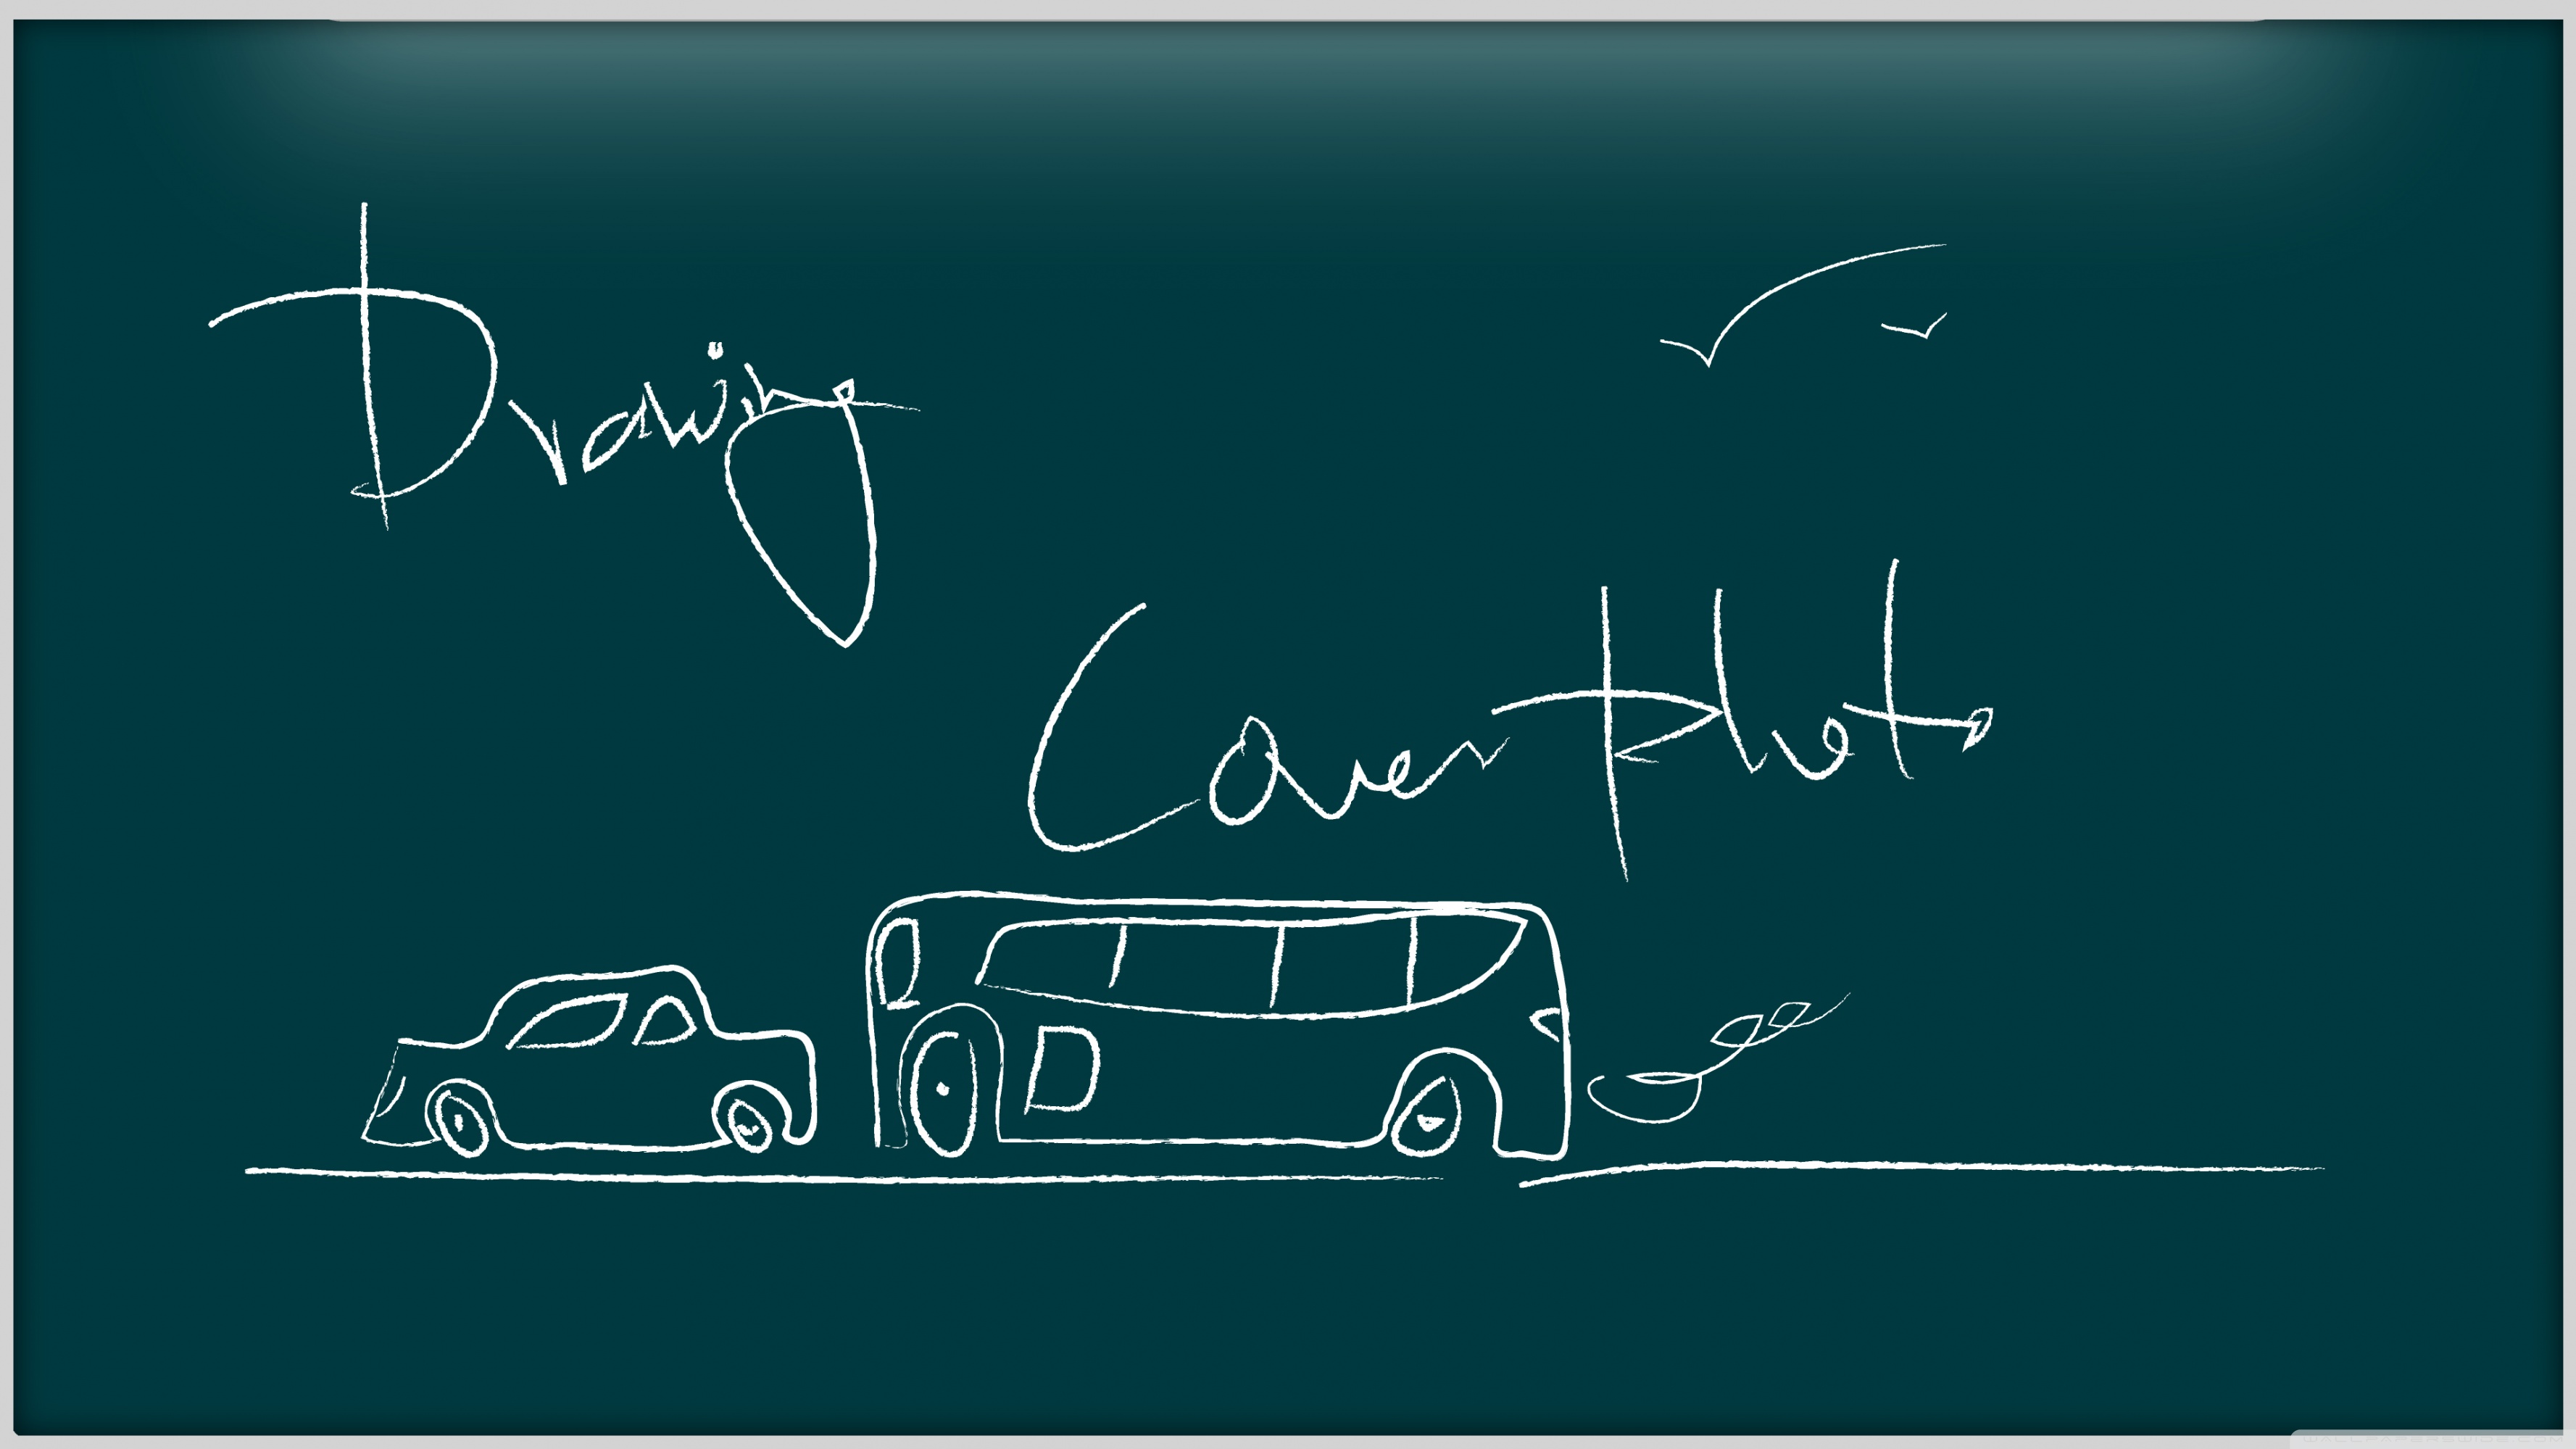 Drawing
Cover Photo